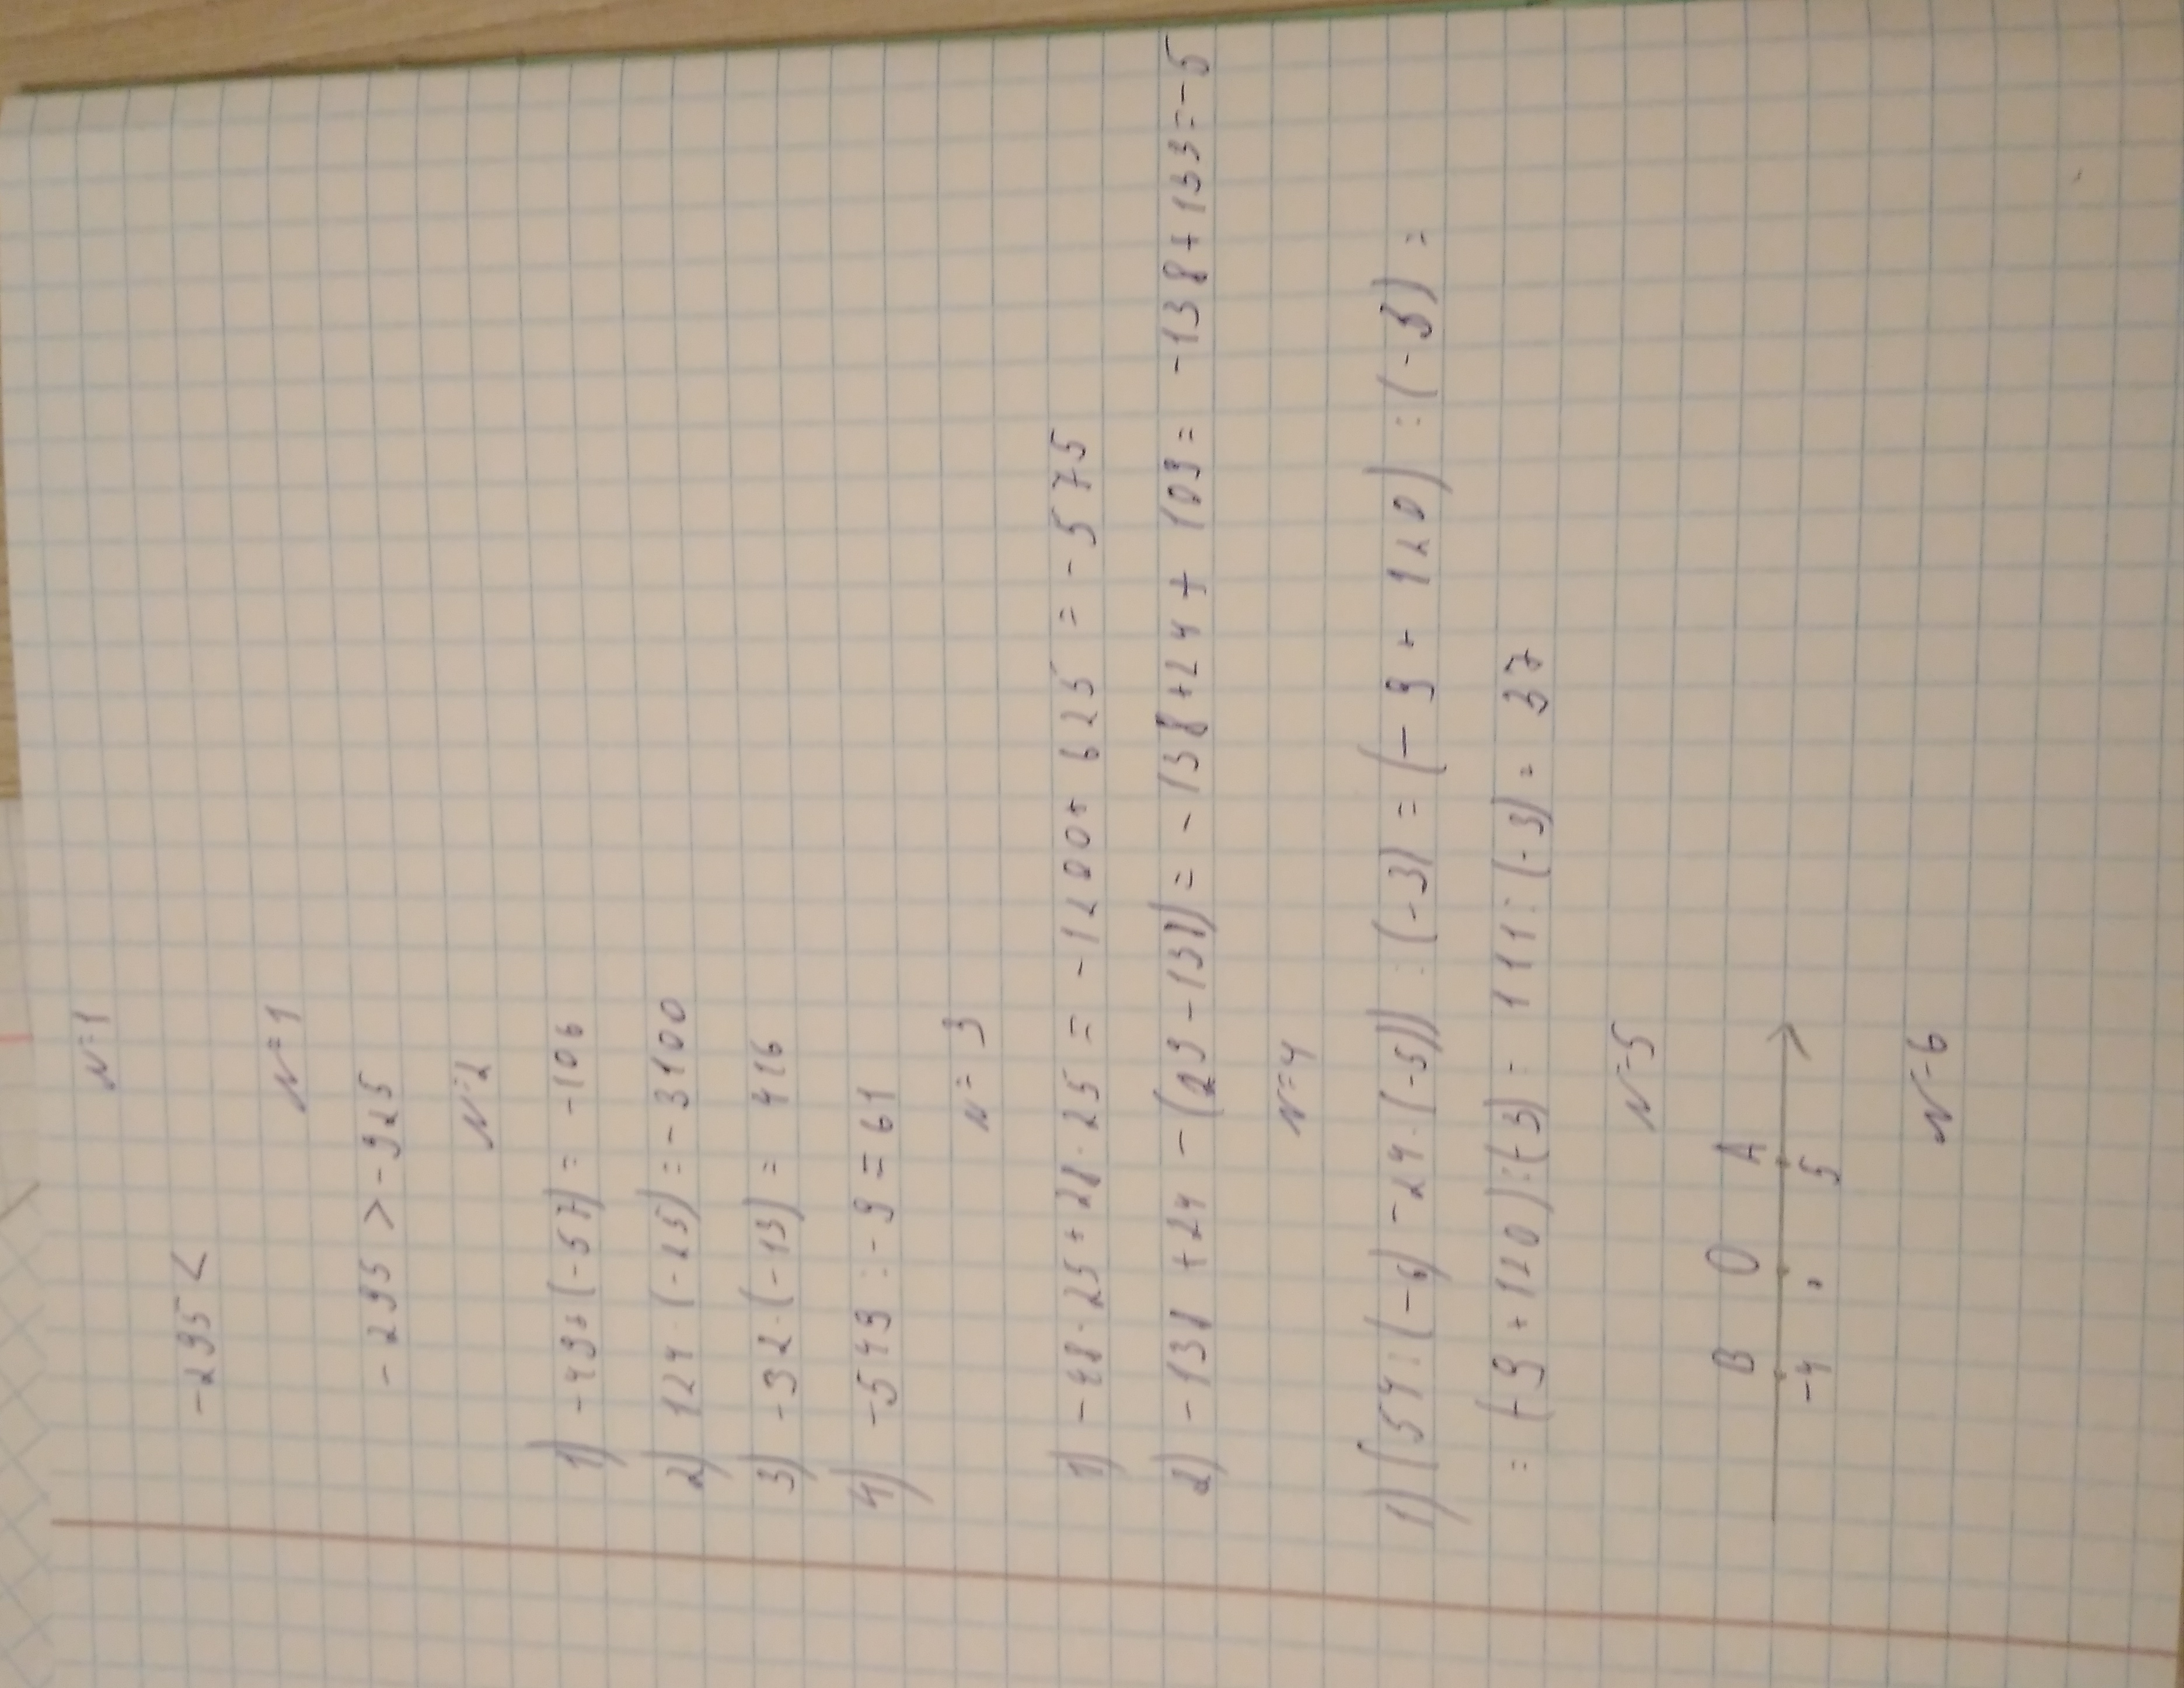 N=1
-295 <
N=1
-295 > -925
N=2
1) -49+(-57) = -106
2) 124·(-25) = -3100
3) -32·(-13) = 416
4) -549 : -9 = 61
N=3
1) -48·25+28·25 = -1200+625 = -575
2) -138+24-(29-138) = -138+24+109 = -138+133=-5
N=4
1) (54:(-6)-24·(-5)):(-3) = (-9+120):(-3) =
= (-9+120):(-3) = 111:(-3) = 37
N=5
B O A
-4 0 5
N=6